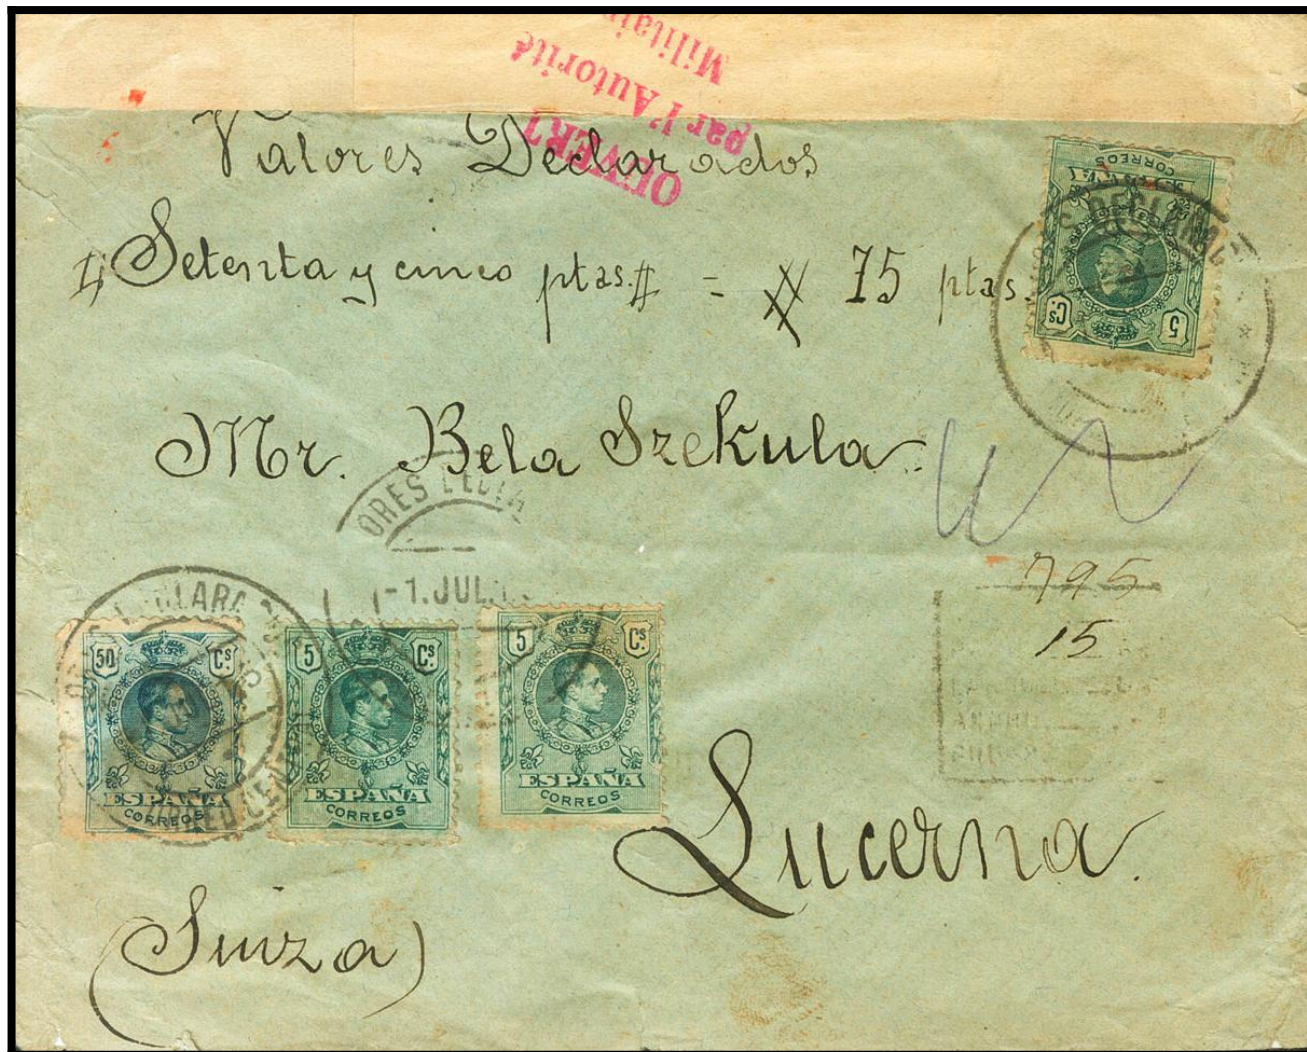 OUVERT
par l'Autorité
Valores Declarados
Setenta y cinco ptas. # = # 75 ptas.
CORREOS
5 Cs
Mr. Bela Szekula
-1.JUL.
795
15
50 Cs
ESPAÑA
CORREOS
5 Cs.
ESPAÑA
CORREOS
5 Cs.
ESPAÑA
CORREOS
Lucerna
(Suiza)